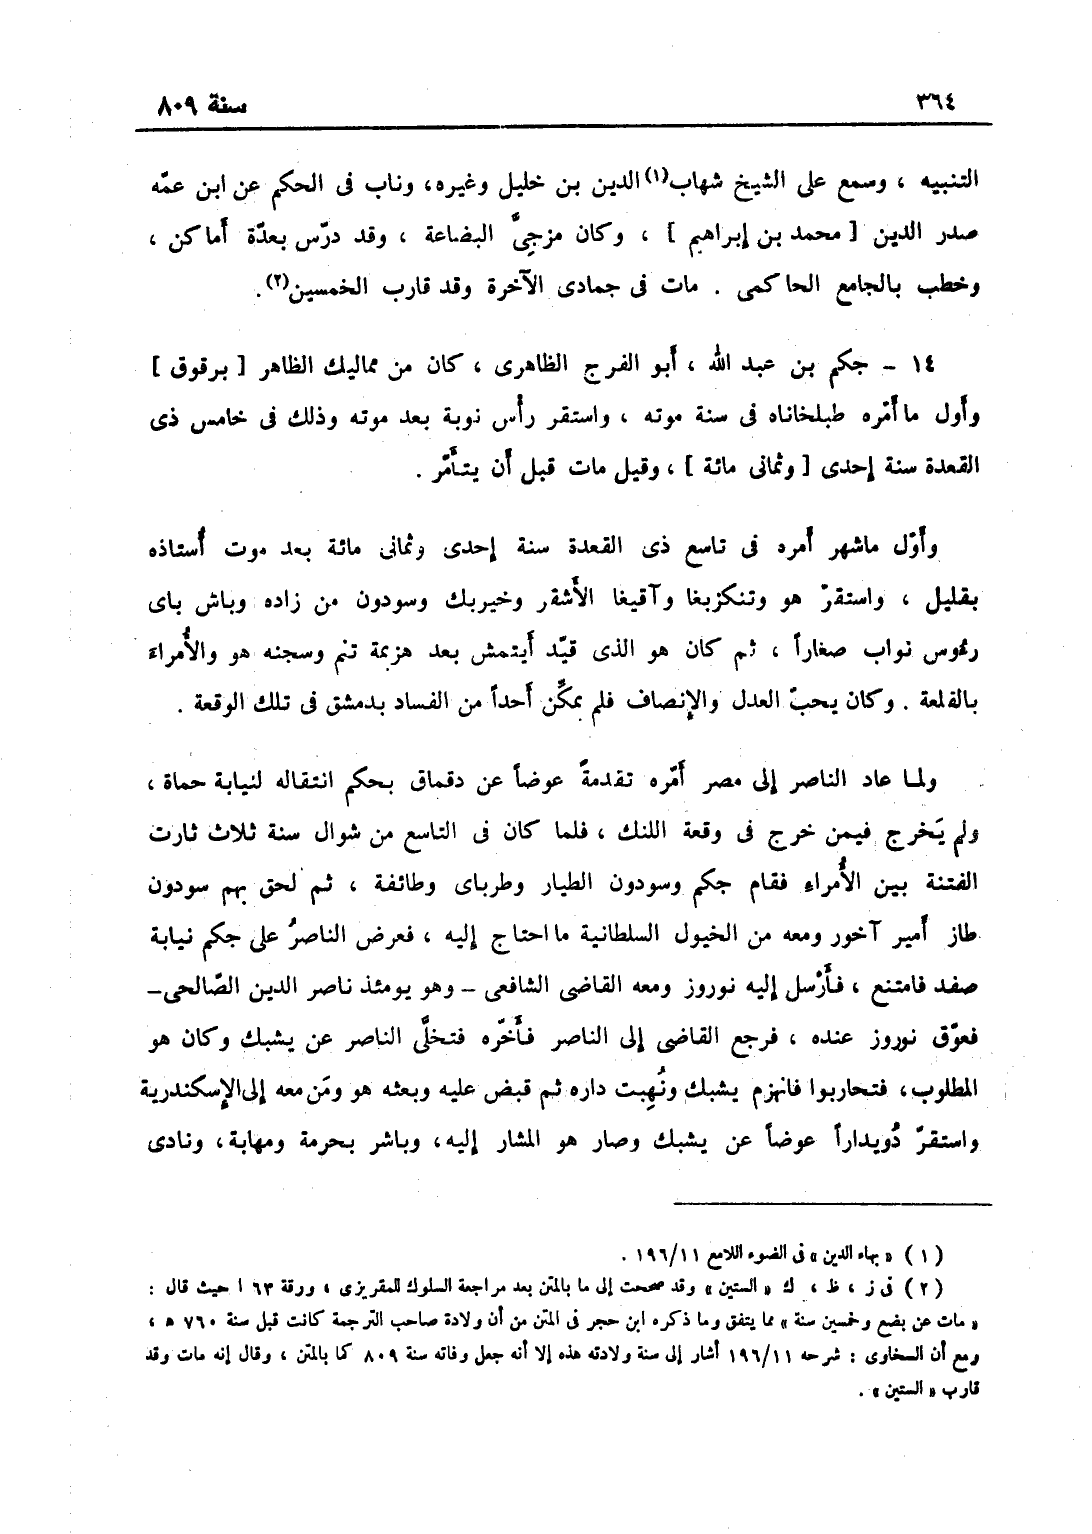 ٣٦٤
سنة ٨٠٩
التنبيه ، وسمع على الشيخ شهاب(١) الدين بن خليل وغيره، وناب فى الحكم عن ابن عمّه
صدر الدين [ محمد بن إبراهيم ] ، وكان مزجىَّ البضاعة ، وقد درّس بعدّة أماكن ،
وخطب بالجامع الحاكمى . مات فى جمادى الآخرة وقد قارب الخمسين(٢).
١٤ - جكم بن عبد الله ، أبو الفرج الظاهرى ، كان من مماليك الظاهر [ برقوق ]
وأول ما أمّره طبلخاناه فى سنة موته ، واستقر رأس نوبة بعد موته وذلك فى خامس ذى
القعدة سنة إحدى [ وثمانى مائة ] ، وقيل مات قبل أن يتأمّر .
وأوّل ماشهر أمره فى تاسع ذى القعدة سنة إحدى وثمانى مائة بعد موت أُستاذه
بقليل ، واستقرّ هو وتنكزبغا وآقيغا الأشقر وخيربك وسودون من زاده وباش باى
رءوس نواب صغاراً ، ثم كان هو الذى قيّد أيتمش بعد هزيمة تنم وسجنه هو والأُمراء
بالقلعة . وكان يحبّ العدل والإنصاف فلم يمكِّن أحداً من الفساد بدمشق فى تلك الوقعة .
ولما عاد الناصر إلى مصر أمّره تقدمةً عوضاً عن دقماق بحكم انتقاله لنيابة حماة ،
ولم يَخرج فيمن خرج فى وقعة اللنك ، فلما كان فى التاسع من شوال سنة ثلاث ثارت
الفتنة بين الأُمراء فقام جكم وسودون الطيار وطرباى وطائفة ، ثم لحق بهم سودون
طاز أمير آخور ومعه من الخيول السلطانية ما احتاج إليه ، فعرض الناصرُ على جكم نيابة
صفد فامتنع ، فأَرْسل إليه نوروز ومعه القاضى الشافعى - وهو يومئذ ناصر الدين الصّالحى-
فعوّق نوروز عنده ، فرجع القاضى إلى الناصر فأخّره فتخلَّى الناصر عن يشبك وكان هو
المطلوب، فتحاربوا فانهزم يشبك ونُهِبت داره ثم قبض عليه وبعثه هو ومَن معه إلى الإسكندرية
واستقرّ دُويداراً عوضاً عن يشبك وصار هو المشار إليه، وباشر بحرمة ومهابة، ونادى
( ١ ) « بهاء الدين » فى الضوء اللامع ١٩٦/١١ .
( ٢ ) فى ز ، ظ ، ك « الستين » وقد صححت إلى ما بالمتن بعد مراجعة السلوك للمقريزى ، ورقة ٦٣ ا حيث قال :
« مات عن بضع وخمسين سنة » مما يتفق وما ذكره ابن حجر فى المتن من أن ولادة صاحب الترجمة كانت قبل سنة ٧٦٠ هـ ،
ومع أن السخاوى : شرحه ١٩٦/١١ أشار إلى سنة ولادته هذه إلا أنه جعل وفاته سنة ٨٠٩ كما بالمتن ، وقال إنه مات وقد
قارب « الستين » .